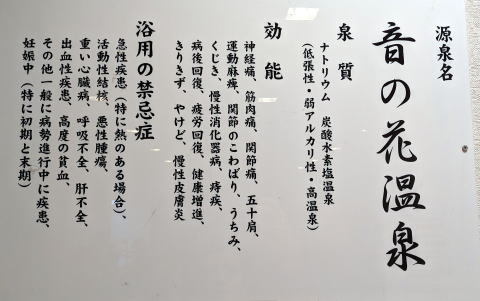 源泉名
音の花温泉
泉質
ナトリウム 炭酸水素塩温泉
(低張性・弱アルカリ性・高温泉)
効能
神経痛、筋肉痛、関節痛、五十肩、
運動麻痺、関節のこわばり、うちみ、
くじき、慢性消化器病、痔疾、
病後回復、疲労回復、健康増進、
きりきず、やけど、慢性皮膚炎
浴用の禁忌症
急性疾患(特に熱のある場合)、
活動性結核、悪性腫瘍、
重い心臓病、呼吸不全、肝不全、
出血性疾患、高度の貧血、
その他一般に病勢進行中に疾患、
妊娠中(特に初期と末期)